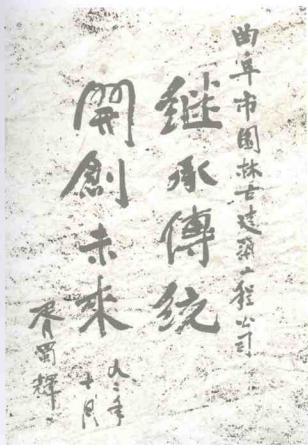 曲阜市園林古建築工程公司
继承傳统
開創未來
九二年
十月
胥蜀輝